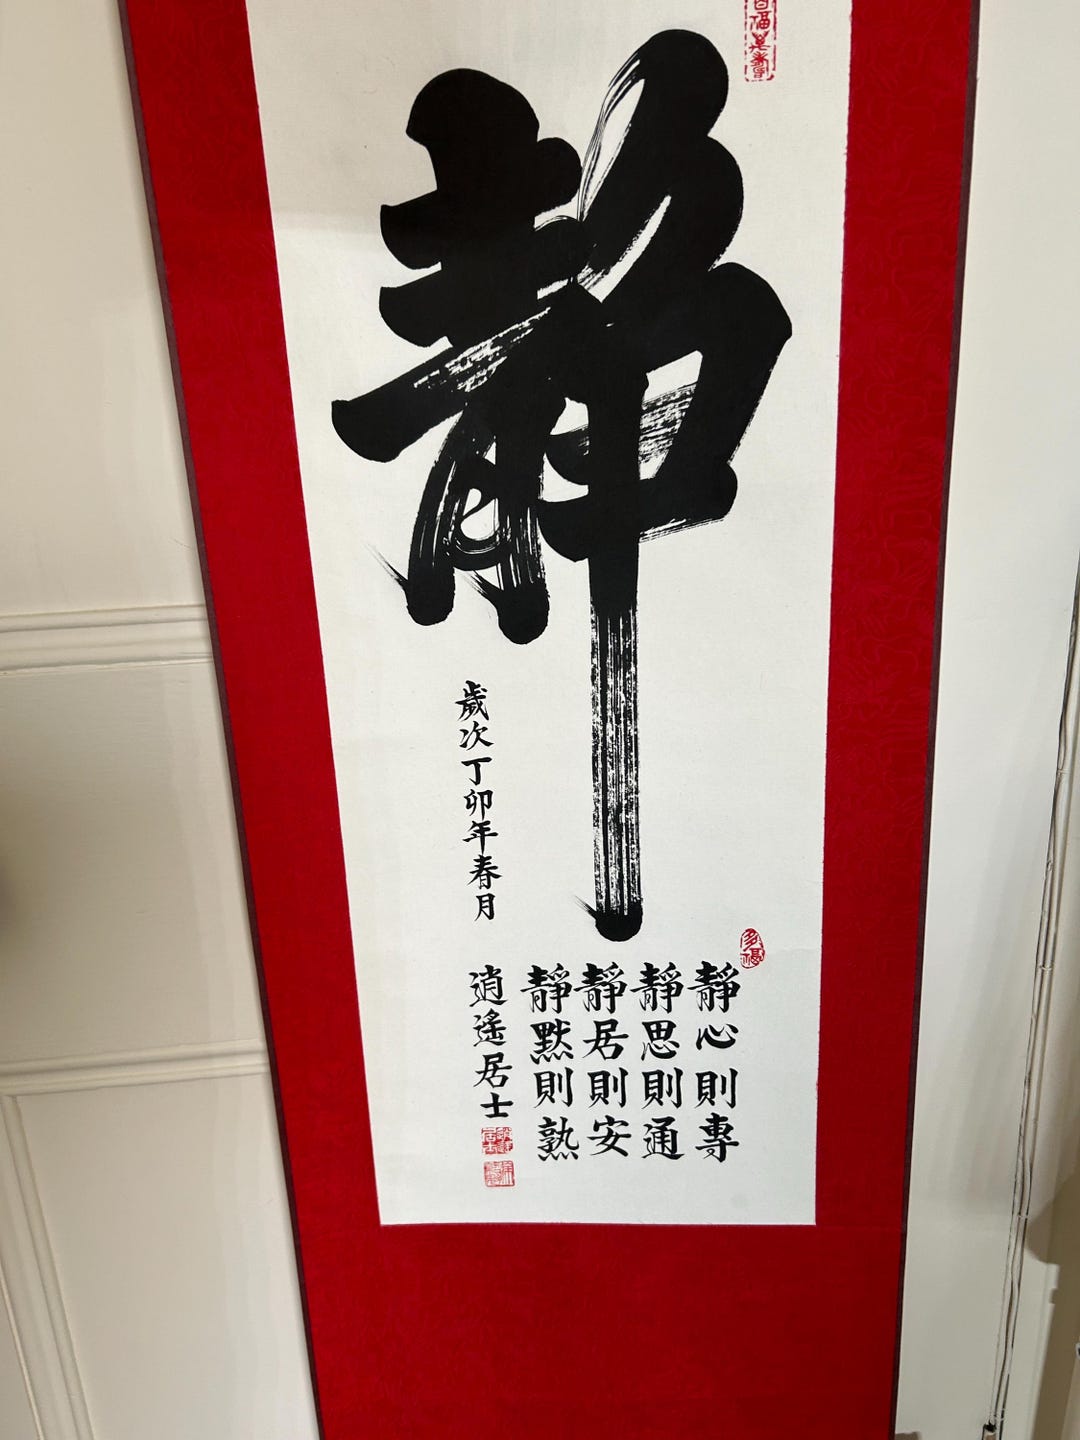 靜
靜心則專
靜思則通
靜居則安
靜默則熟
歲次丁卯年春月
逍遙居士
多福